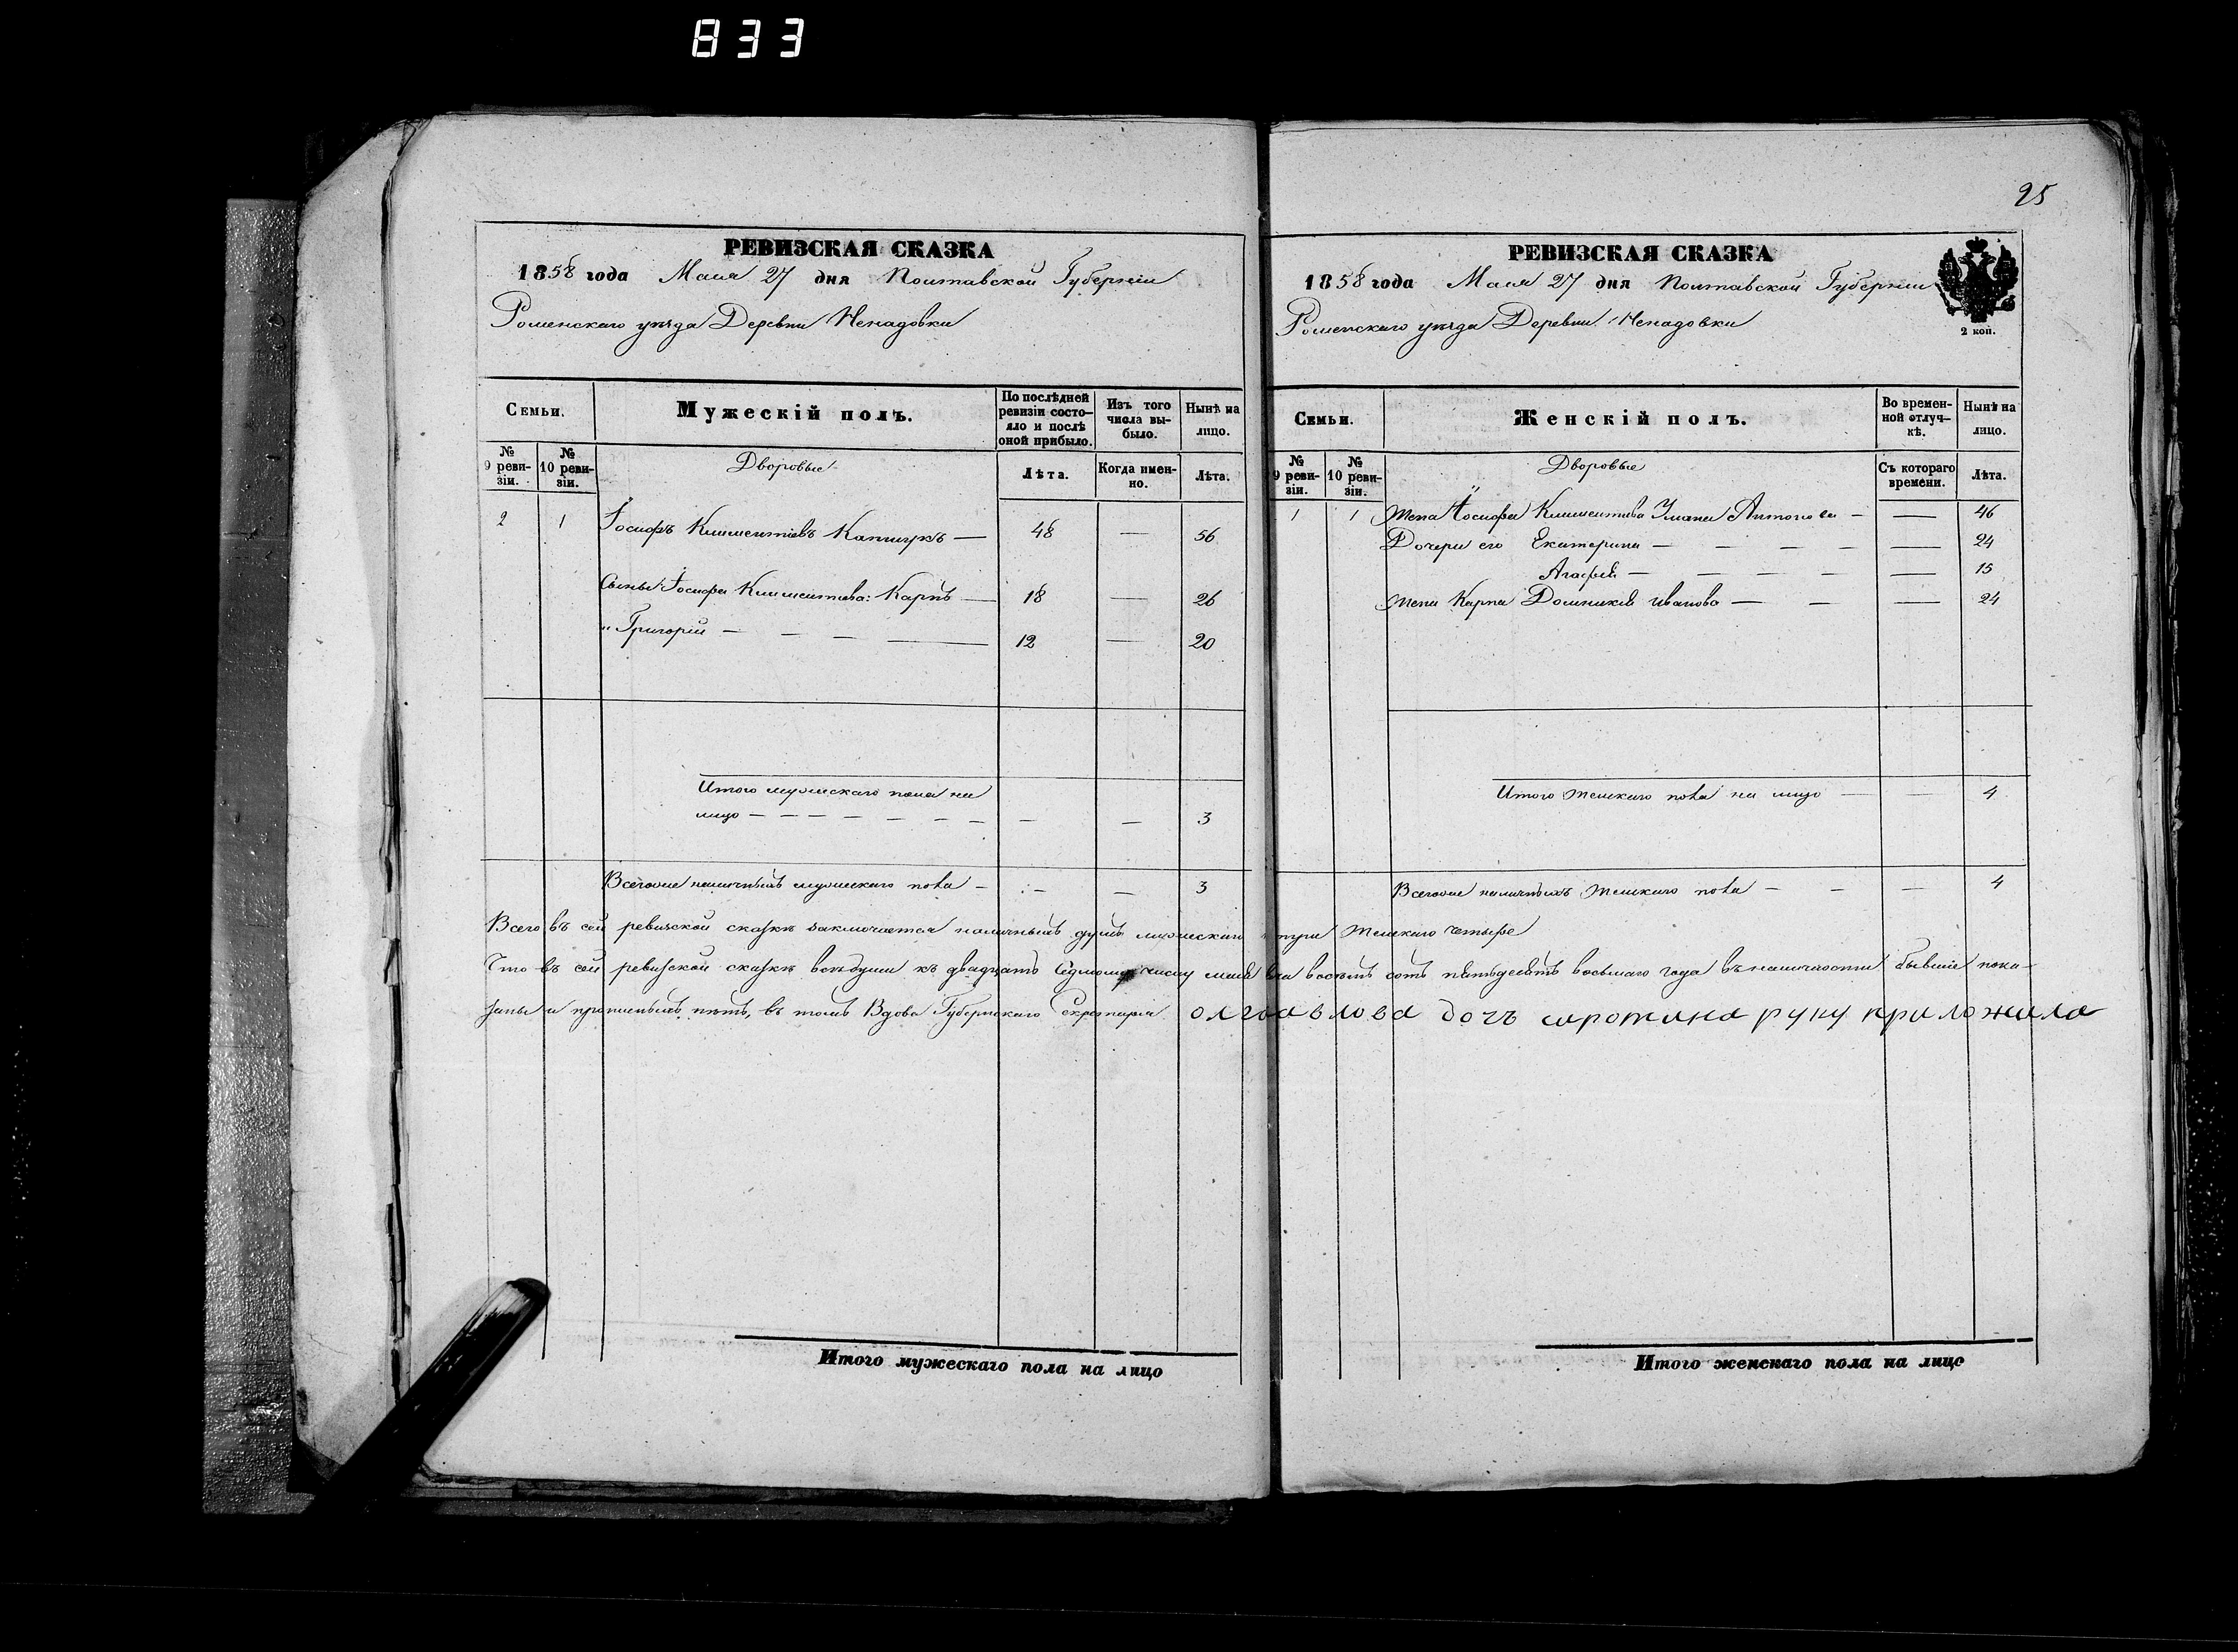 833
РЕВИЗСКАЯ СКАЗКА
1858 года Мая 27 дня Полтавской Губерніи
Роменскаго уѣзда Деревни Ненадовки
Семьи.
Мужескій полъ.
По послѣдней ревизіи состояло и послѣ оной прибыло.
Изъ того числа выбыло.
Нынѣ на лицо.
№ 9 ревизіи.
№ 10 ревизіи.
Дворовые
Лѣта.
Когда именно.
Лѣта.
2 1 Іосифъ Климентіевъ — 48 — 56
Сыны Іосифа Климентіева: Карпъ — 18 — 26
" Григорій — — — — 12 — 20
Итого мужескаго пола на
лицо — — — — — — — — — — 3
Всего наличныхъ мужескаго пола — — — 3
Итого мужескаго пола на лицо
25
РЕВИЗСКАЯ СКАЗКА
1858 года Мая 27 дня Полтавской Губерніи
Роменскаго уѣзда Деревни Ненадовки
2 коп.
Семьи.
Женскій полъ.
Во временной отлучкѣ.
Нынѣ на лицо.
№ 9 ревизіи.
№ 10 ревизіи.
Дворовые
Съ котораго времени.
Лѣта.
1 1 Жена Іосифа Климентіева Антонова — — 46
Дочери его Екатерина — — — — — — 24
Агафія — — — — — 15
Жена Карпа Домникія Иванова — — — 24
Итого женскаго пола на лицо — — 4
Всего наличныхъ женскаго пола — — — 4
Всего въ сей ревизской сказкѣ заключается наличныхъ душъ мужескаго три женскаго четыре
Что въ сей ревизской сказкѣ всѣ души къ двадцать седмому числу мая восемь сотъ пятьдесятъ восьмаго года въ наличности бывшіе пока-
заны и прописныхъ нѣтъ, въ томъ Вдова Губернскаго Секретаря дочъ руку приложила
Итого женскаго пола на лицо